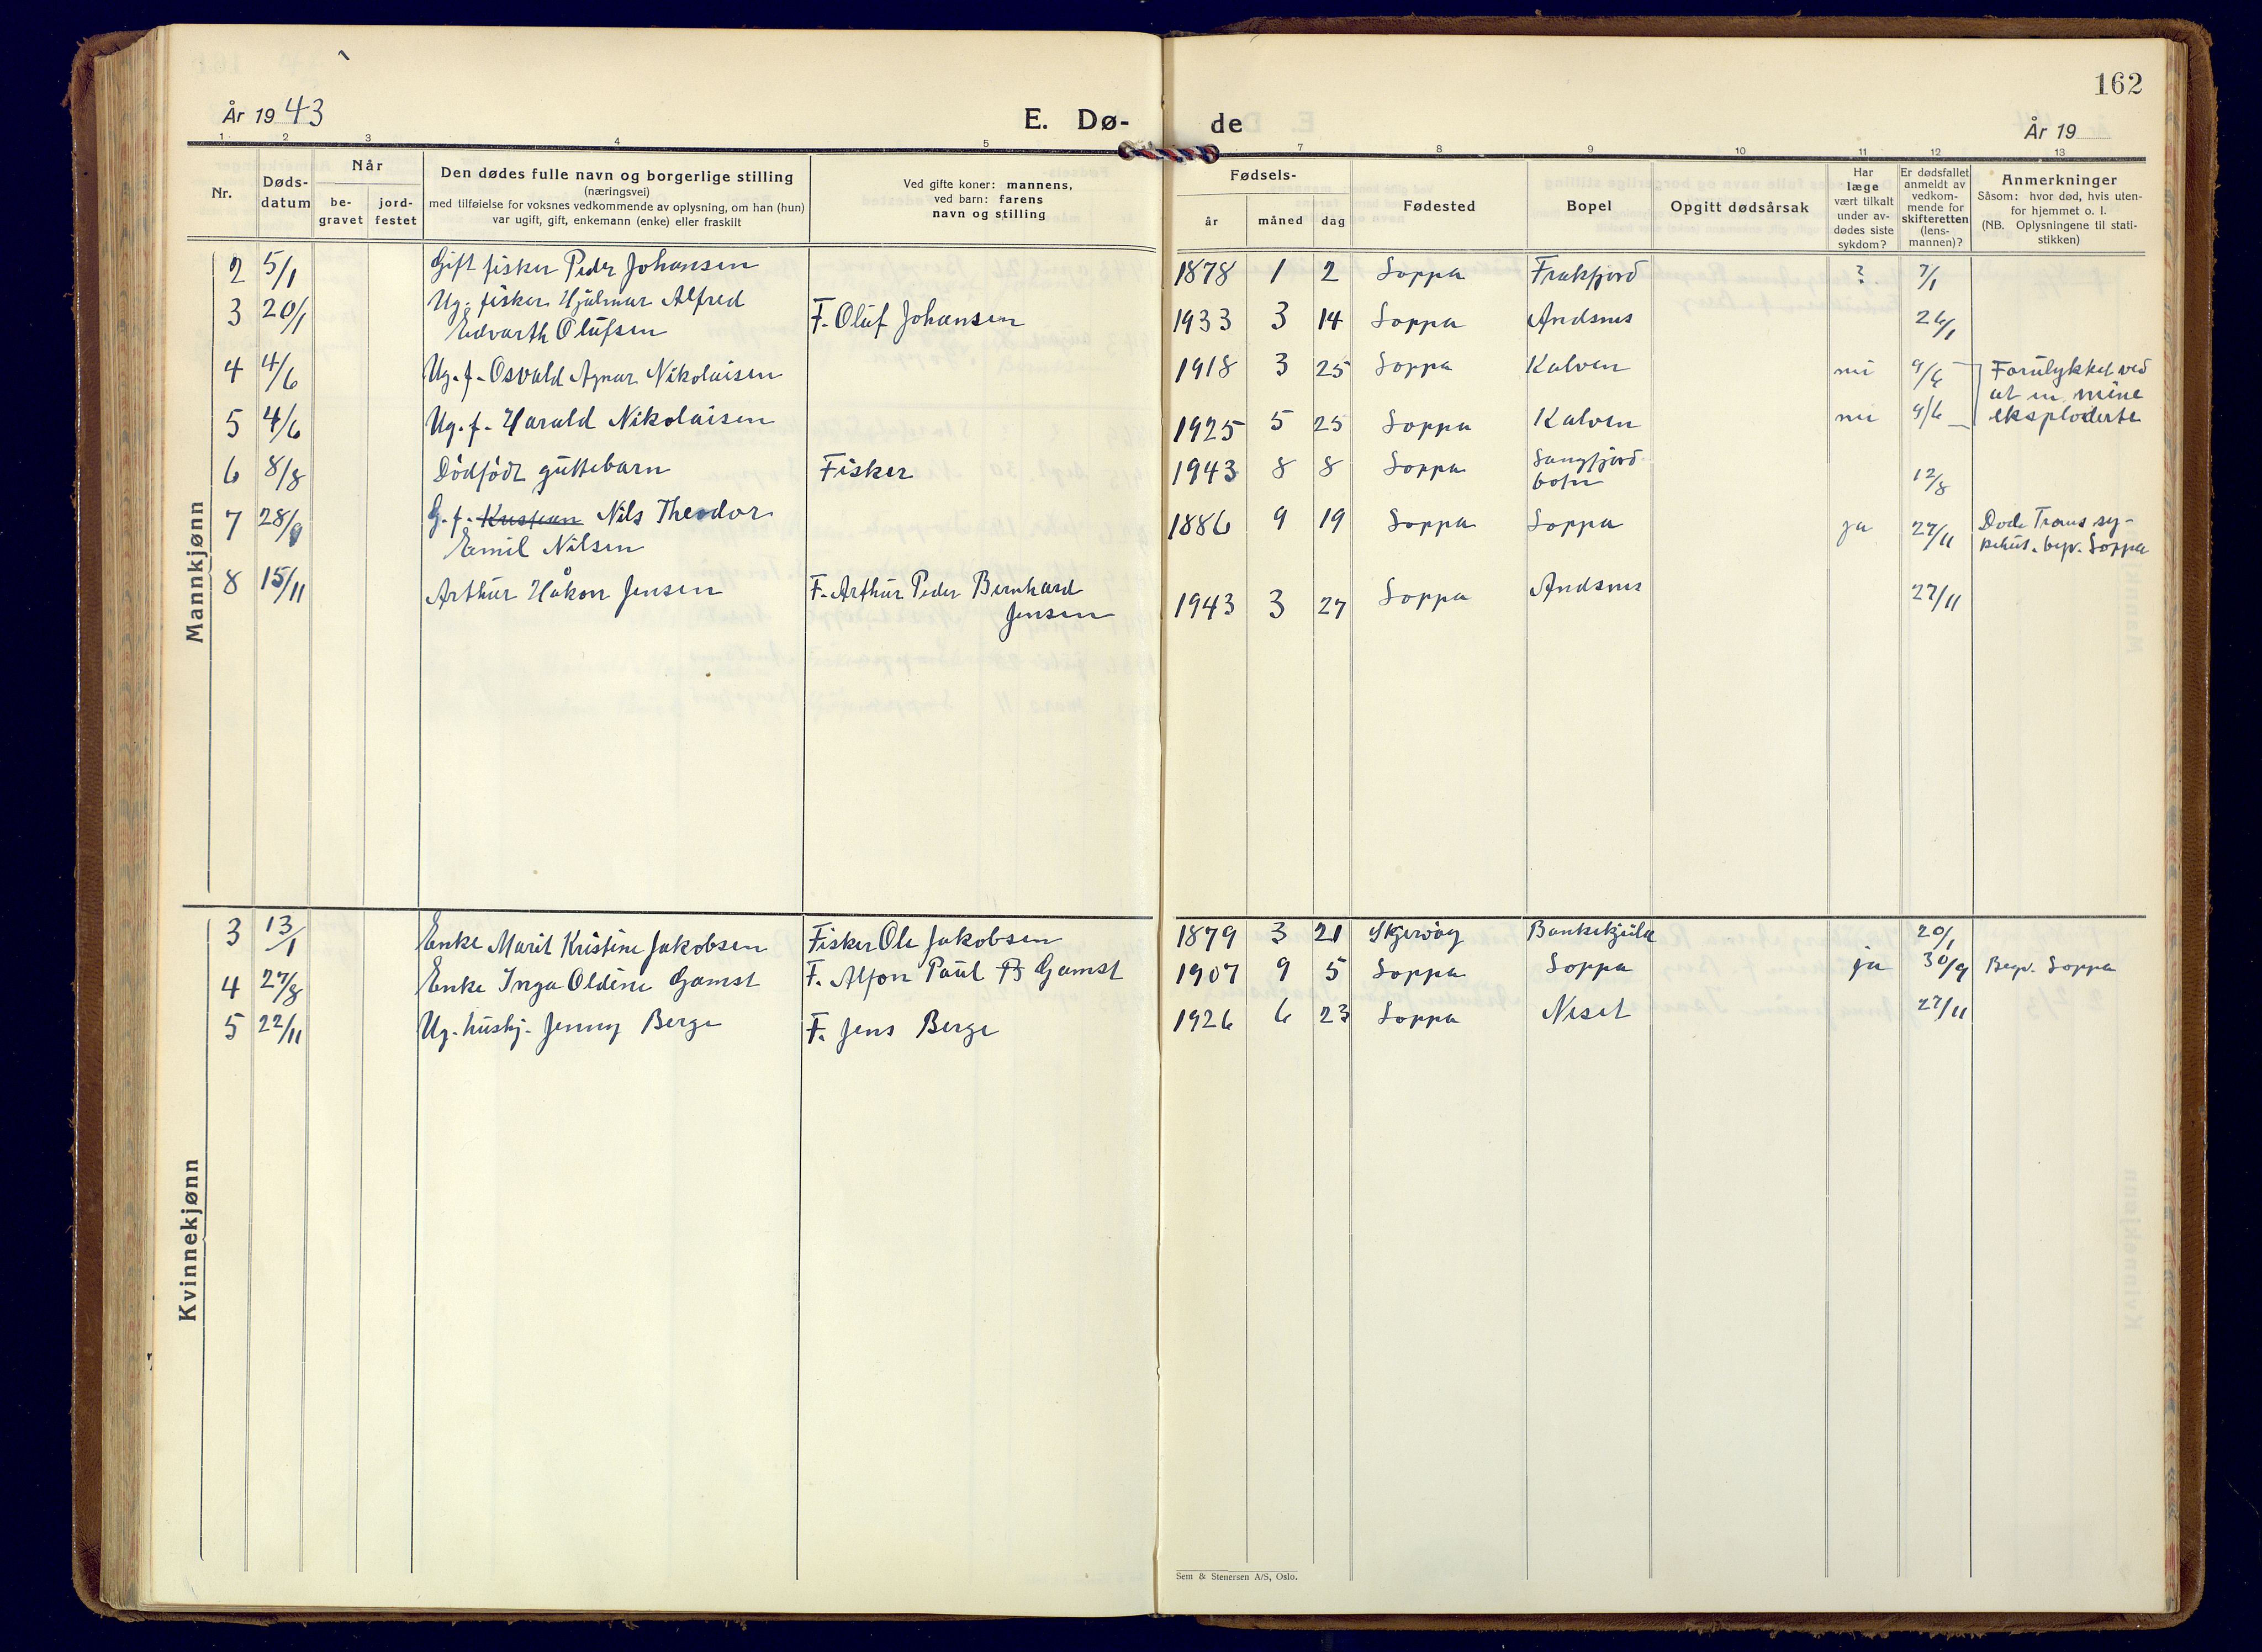 162
År 1943
E. Dø-
de
År 19
1 2 3 4 5
7 8 9 10 11 12 13
Nr.
Døds-
datum
Når
be-
gravet
jord-
festet
Den dødes fulle navn og borgerlige stilling
(næringsvei)
med tilføielse for voksnes vedkommende av oplysning, om han (hun)
var ugift, gift, enkemann (enke) eller fraskilt
Ved gifte koner: mannens,
ved barn: farens
navn og stilling
Fødsels-
år måned dag
Fødested
Bopel
Opgitt dødsårsak
Har
læge
vært tilkalt
under av-
dødes siste
sykdom?
Er dødsfallet
anmeldt av
vedkom-
mende for
skifteretten
(lens-
mannen)?
Anmerkninger
Såsom: hvor død, hvis uten-
for hjemmet o. l.
(NB. Oplysningene til stati-
stikken)
Mannkjønn
2 5/1 Gift fisker Peder Johansen 1878 1 2 Loppa Frakfjord ? 7/1
3 20/1 Ug. fisker Hjalmar Alfred
Edvarth Olufsen F. Oluf Johansen 1933 3 14 Loppa Andsnes
4 4/6 Ug. f. Osvald Agnar Nikolaisen 1918 3 25 Loppa Kalven nei 9/6 Forulykket ved
at en mine
5 4/6 Ug. f. Harald Nikolaisen 1925 5 25 Loppa Kalven nei 9/6 eksploderte
6 8/8 Dødfødt guttebarn Fisker 1943 8 8 Loppa Sangfjord-
botn 12/8
7 28/9 G. f. Kristian Nils Theodor 1886 9 19 Loppa Loppa ja 27/11 Døde Troms sy-
Emil Nilsen kehus. begr. Loppa
8 15/11 Arthur Håkon Jensen F. Arthur Peder Bernhard
Jensen 1943 3 27 Loppa Andsnes 27/11
Kvinnekjønn
3 13/1 Enke Marit Kristine Jakobsen Fisker Ole Jakobsen 1879 3 21 Skjervøy 20/1
4 27/8 Enke Inga Oldine Gamst F. Alfon Paul Gamst 1907 9 5 Loppa Loppa ja 30/9 Begr. Loppa
5 22/11 Ug. hushj. Jenny Berge F. Jens Berge 1926 6 23 Loppa Neset 27/11
Sem & Stenersen A/S, Oslo.